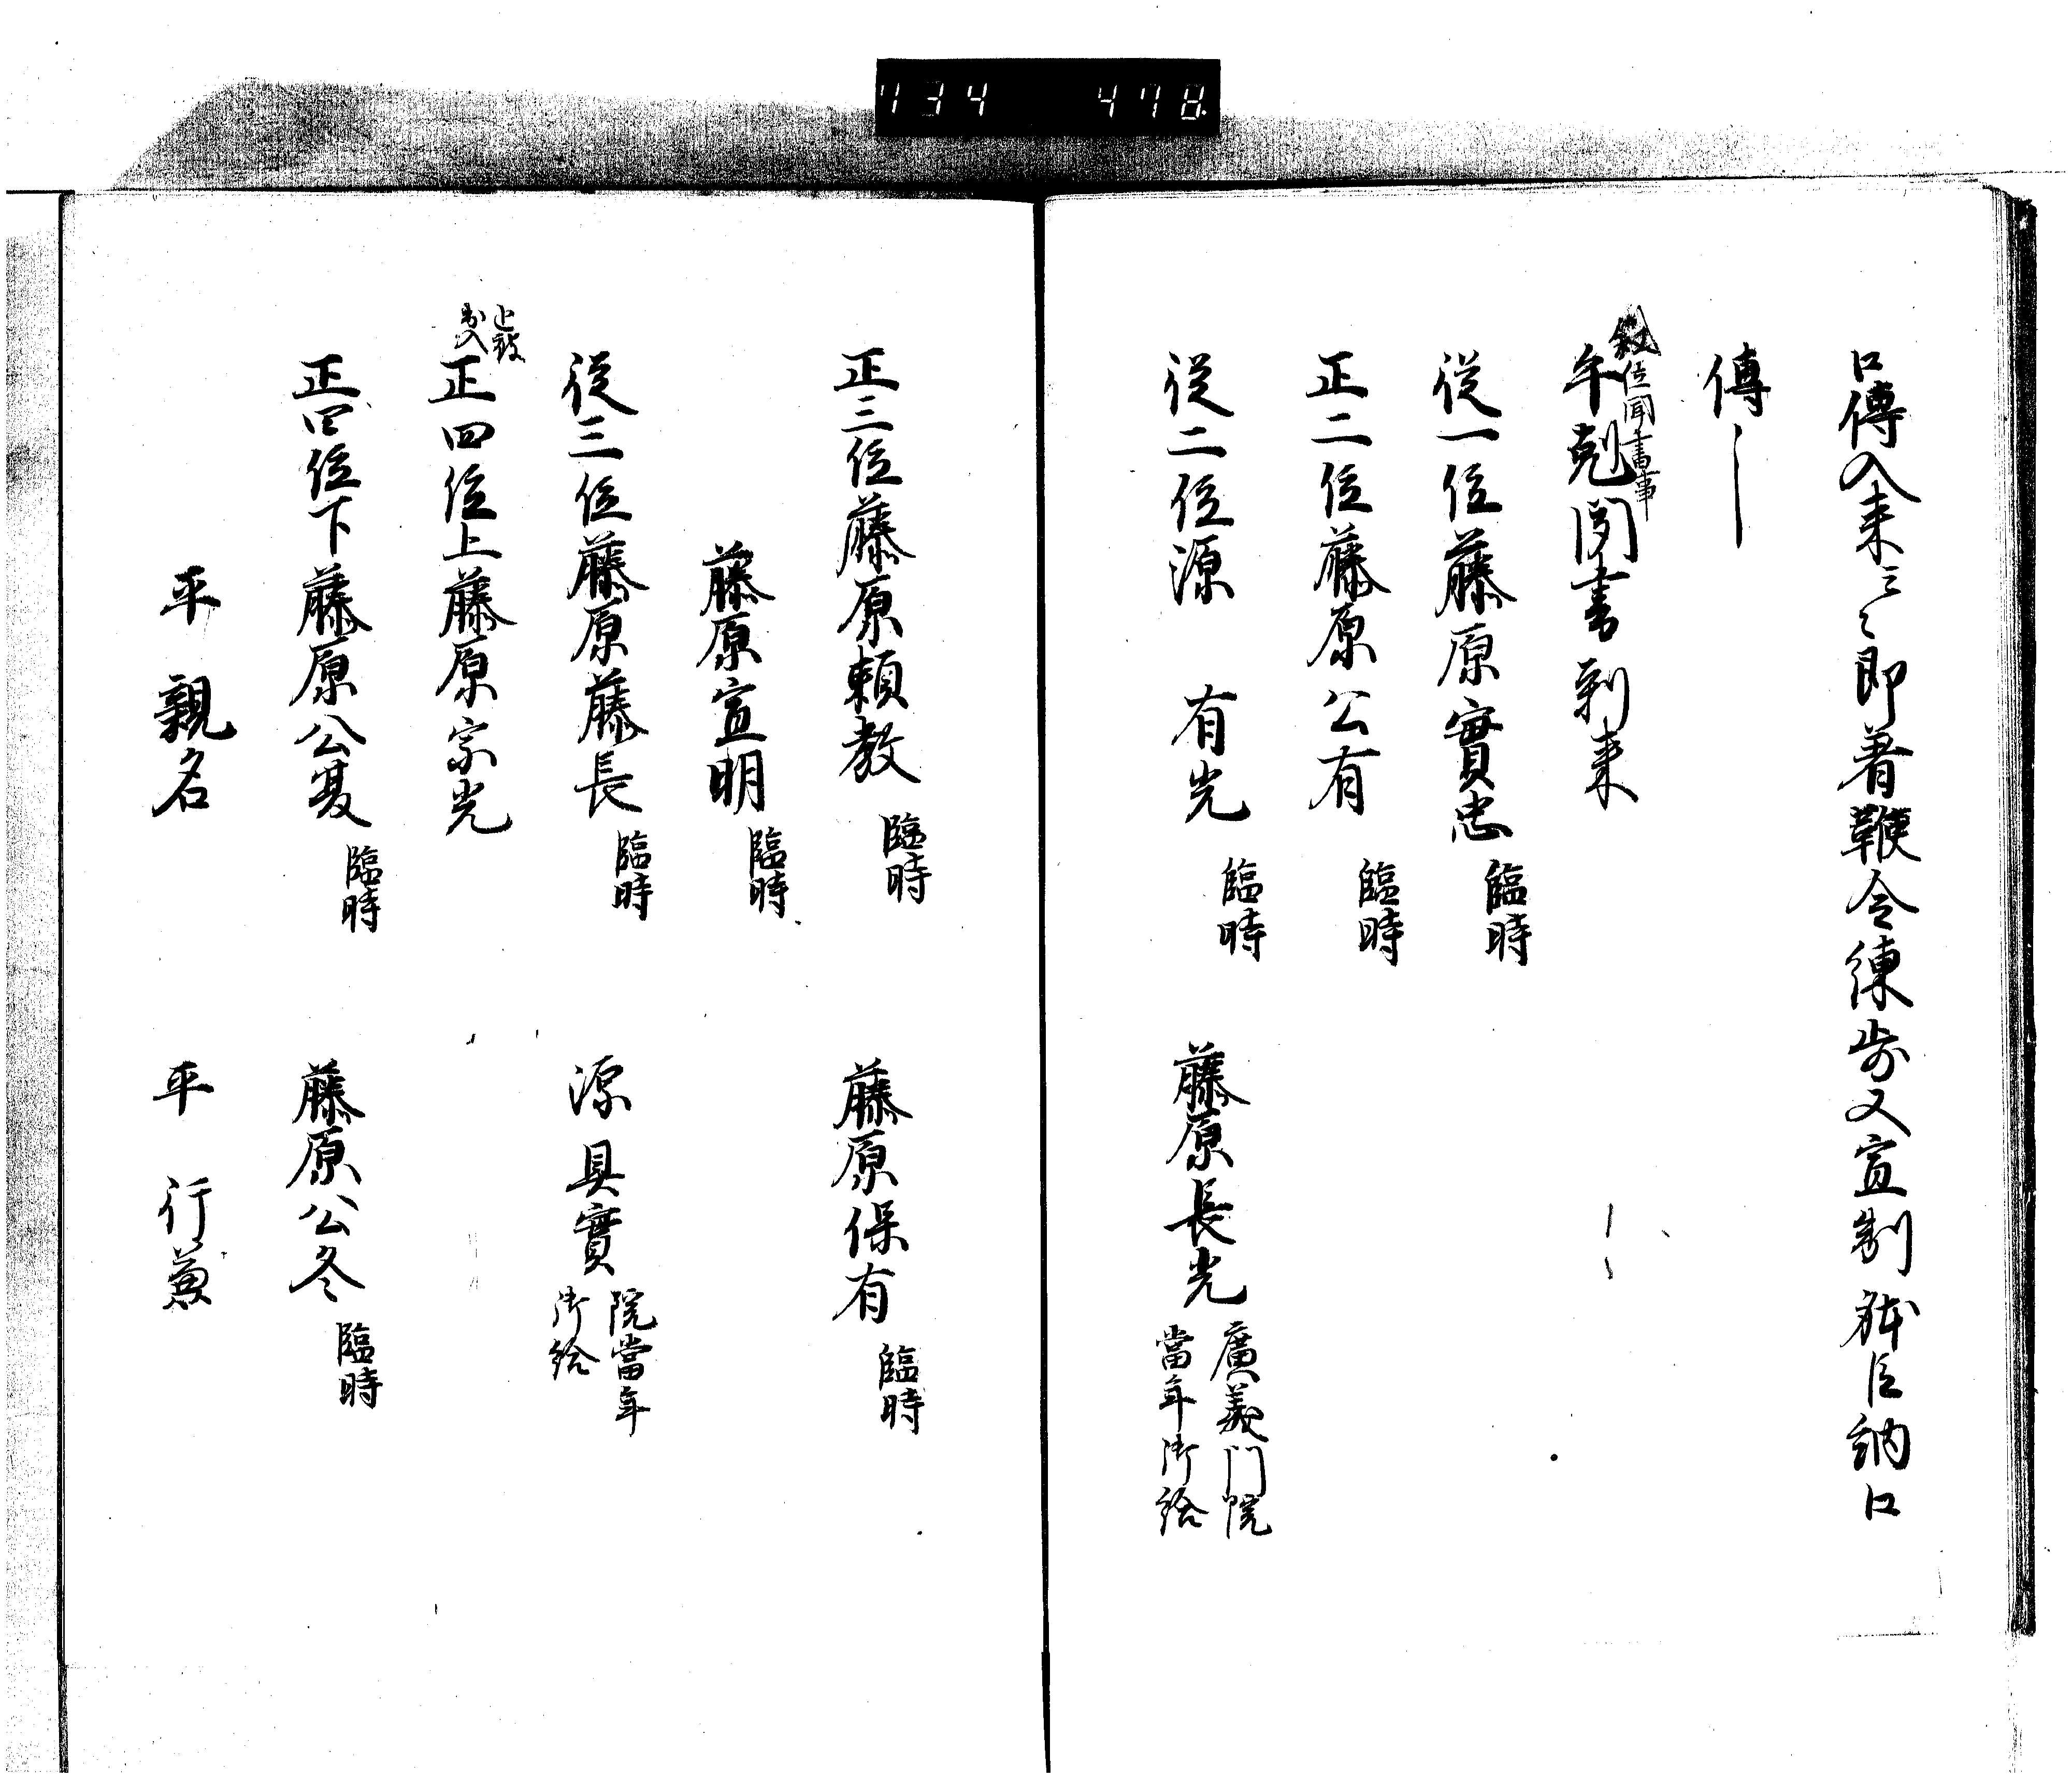 734 478
口傳入来云々即着鞭令練歩又宣制躰臣納口
傳
叙位聞書事
午剋聞書到来
従一位藤原實忠 臨時
正二位藤原公有 臨時
従二位源有光 臨時 藤原長光 廣義門院當年御給
正三位藤原頼教 臨時 藤原保有 臨時
藤原宣明 臨時
従三位藤原藤長 臨時 源具實 院當年御給
正四位上藤原宗光
正四位下藤原公夏 臨時 藤原公冬 臨時
平親名 平行兼